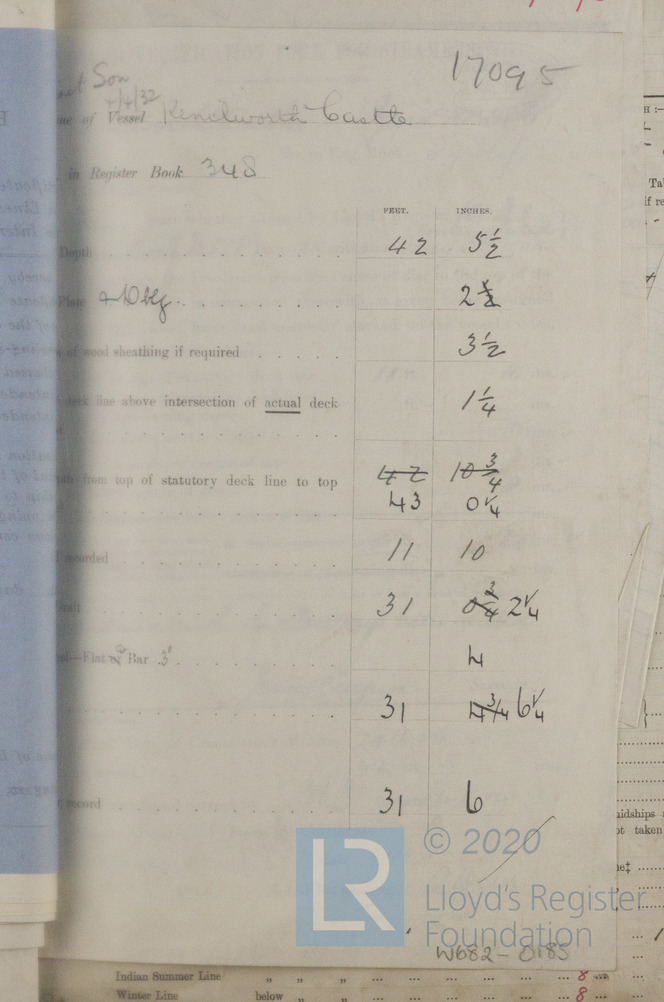 17095
Son
7/4/32
of Vessel Kenilworth Castle
in Register Book 348
FEET. INCHES.
Depth 42 5½
Plate
2½
of wood sheathing if required 3½
deck line above intersection of actual deck 1¼
from top of statutory deck line to top 42 10¾
43 0¼
recorded 11 10
31 0¾ 2¼
Flat or Bar 3" 4
31 4¾ 6¼
record 31 6
LR
© 2020
Lloyd's Register
Foundation
W682-0185
Indian Summer Line „ „ „ ... ... ... ... ... 8
Winter Line below „ „ ... ... ... ... ... 8
idships
ot taken